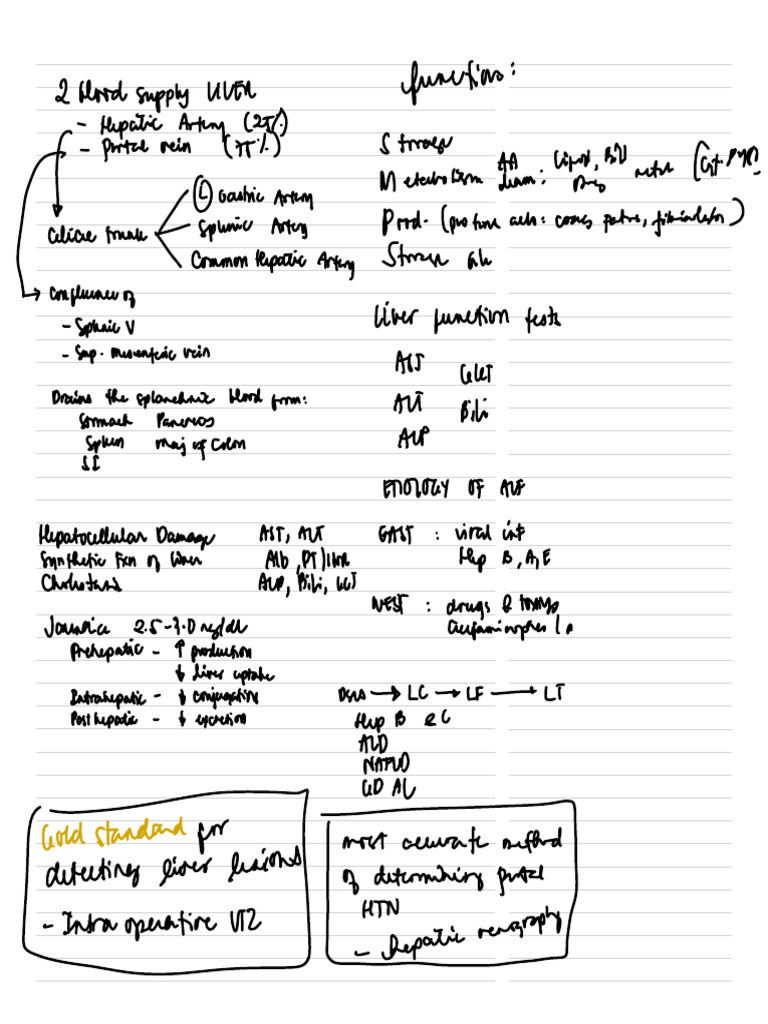 2 blood supply LIVER
- Hepatic Artery (25%)
- Portal vein (75%)
(L) Gastric Artery
Splenic Artery
Common Hepatic Artery
Celiac trunk
Confluence of
- Splenic V
- Sup. mesenteric vein
Drains the splanchnic blood from:
Stomach Pancreas
Spleen maj of Colon
SI
Hepatocellular Damage AST, ALT
Synthetic Fxn of liver Alb, PT/INR
Cholestasis ALP, Bili, GGT
Jaundice 2.5-3.0 mg/dL
Prehepatic - ↑ production
↓ liver uptake
Intrahepatic - ↓ conjugation
Posthepatic - ↓ excretion
Gold standard for
detecting liver lesions
- Intra operative UTZ
function:
Storage
Metabolism
Prod.
Storage
Liver function tests
AST GGT
ALT Bili
ALP
ETIOLOGY OF ALF
EAST : viral inf
Hep B, A, E
WEST : drugs & toxins
→ LC → LF → LT
Hep B & C
ALD
NAFLD
most accurate method
of determining portal
HTN
- Hepatic venography